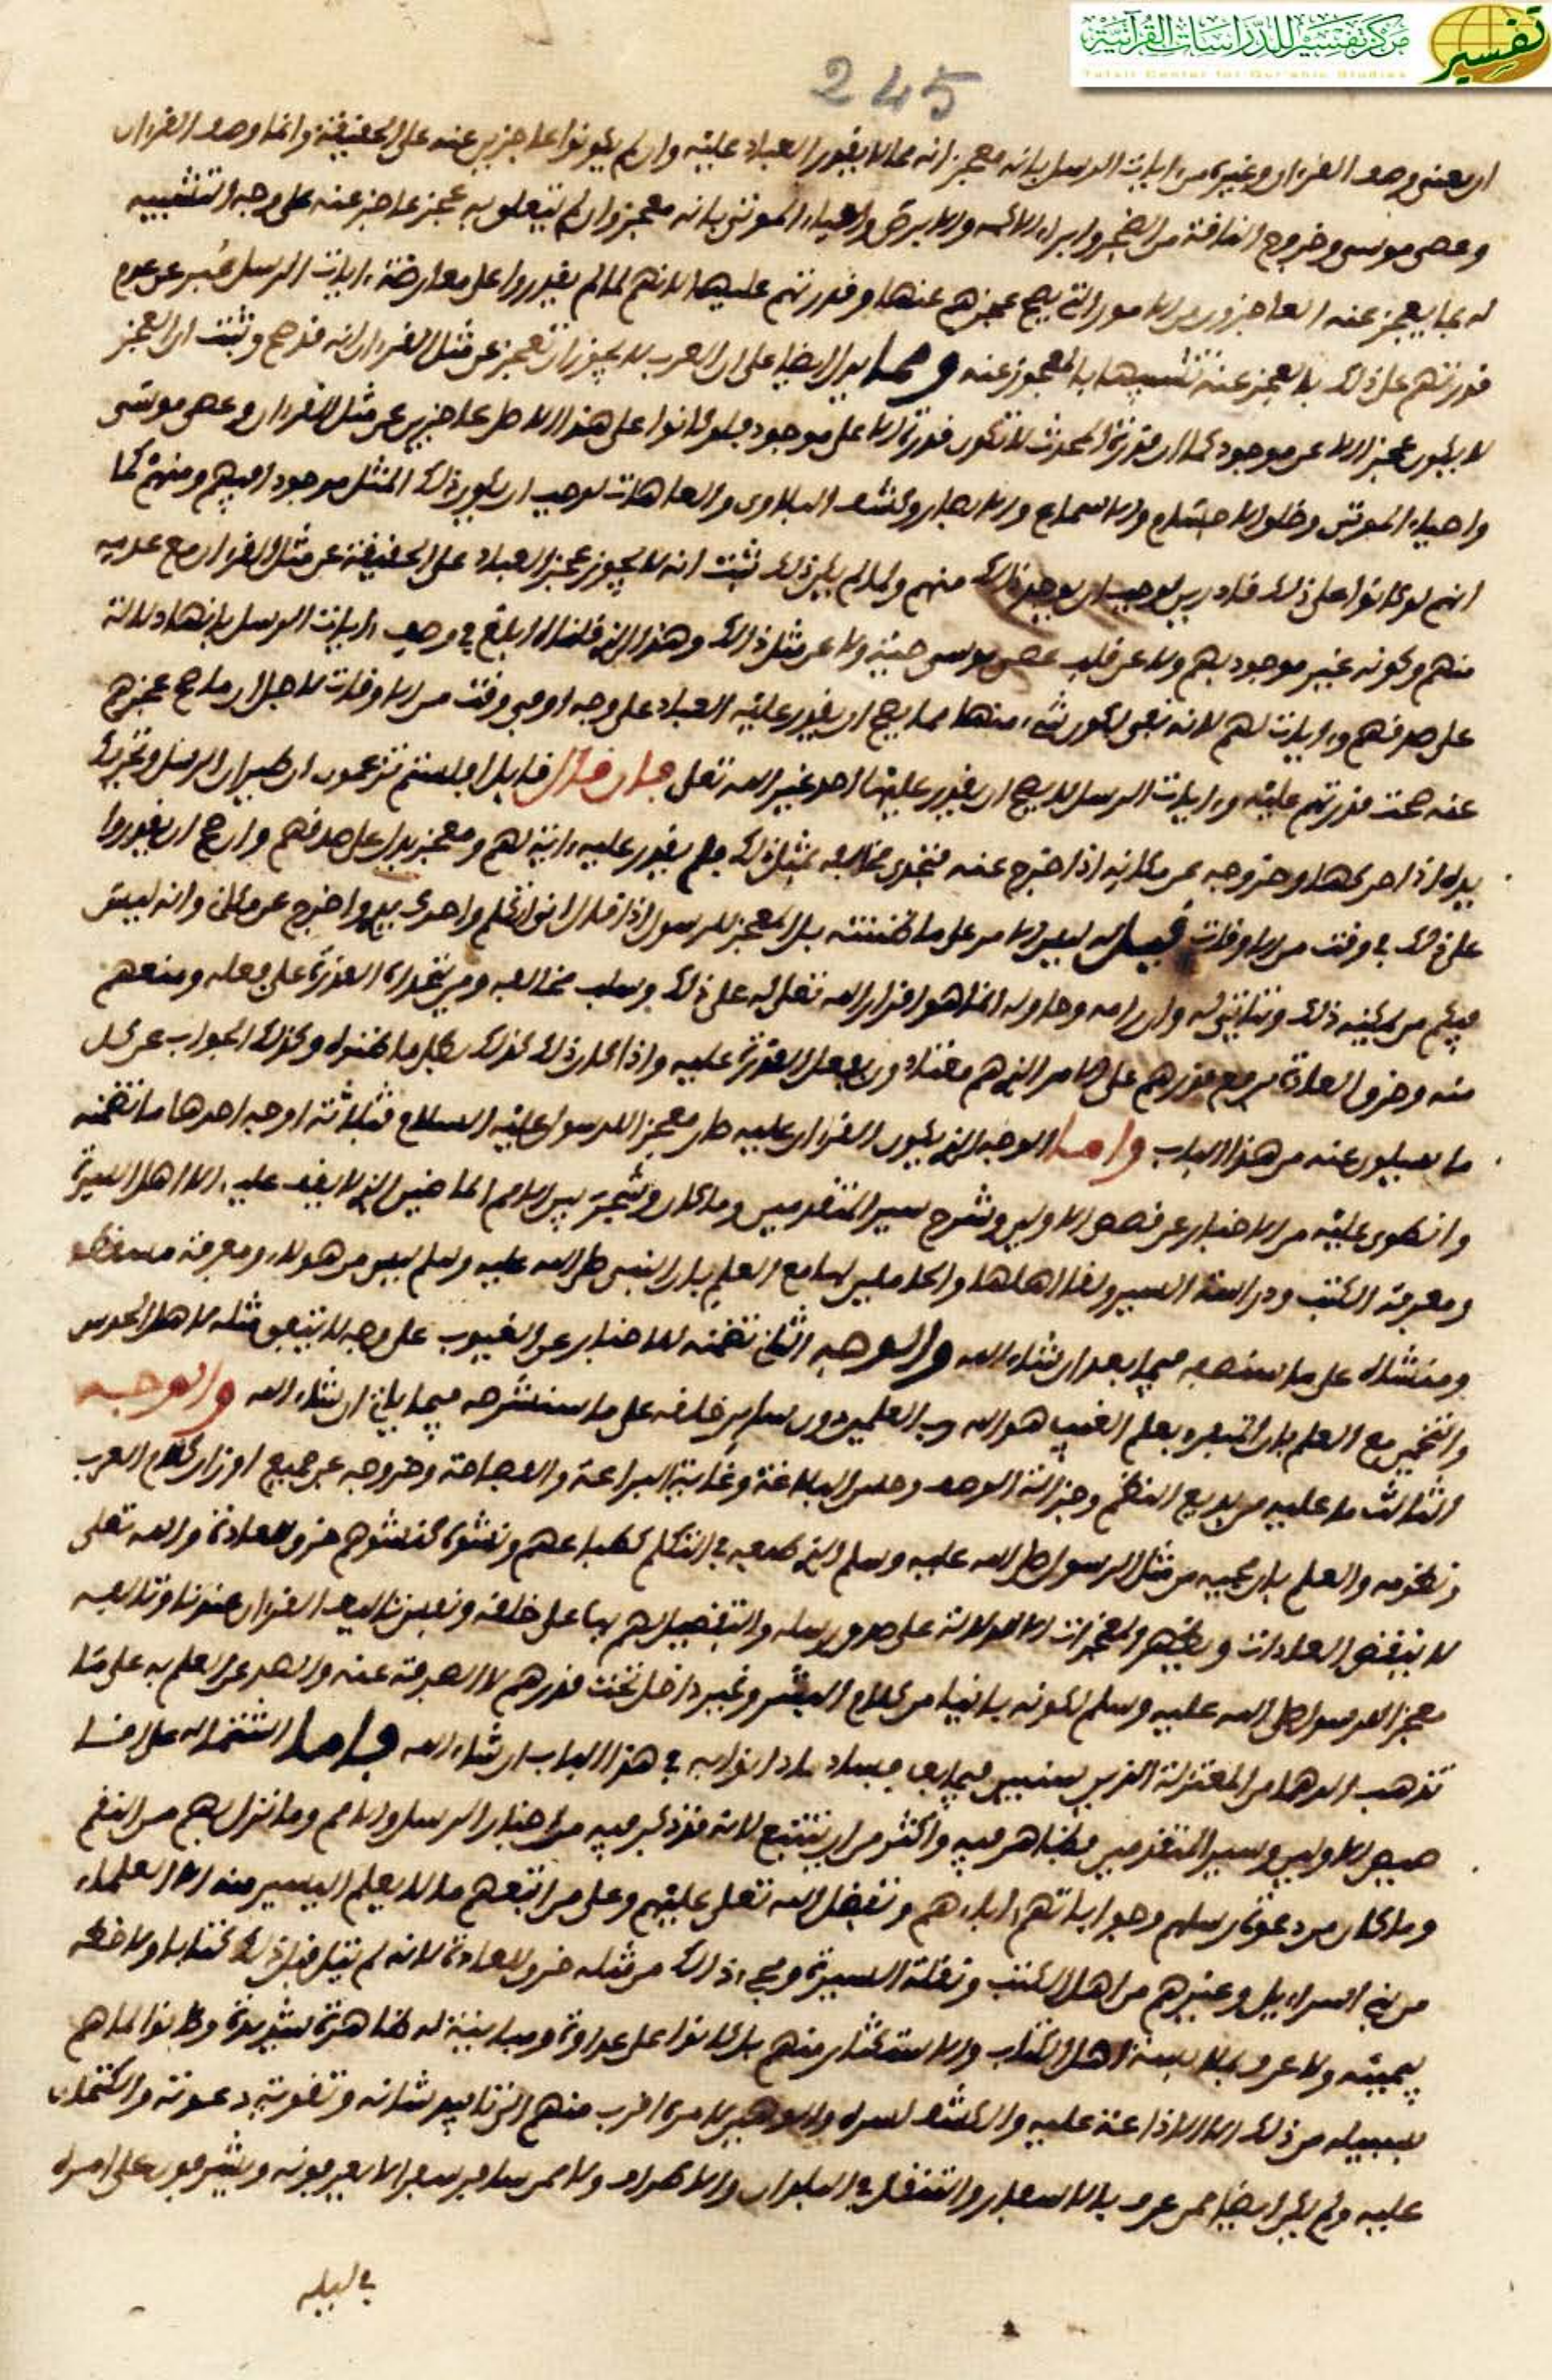 مركز تفسير للدراسات القرآنية
Tafsir Center for Qur'anic Studies
تفسير
245
ان معنى وصف القران وغيره من ايات الرسل بانه معجز انه مما لا يقدر العباد عليه وان لم يكونوا عاجزين عنه على الحقيقة وانما وصف القران
وعصى موسى وخروج الناقة من الصخر وابراء الاكمه والابرص واحياء الموتى بانه معجز وان لم يتعلق به عجز عاجز عنه على وجه التشبيه
له بما يعجز عنه العاجزون من الامور التي يصح عجزهم عنها وقدرتهم عليها لانهم لما لم يقدروا على معارضة ايات الرسل عبر عن عدم
قدرتهم على ذلك بالعجز عنه تشبيها بالمعجوز عنه ومما يدل ايضا على ان العرب لا يجوز ان تعجز عن مثل القران انه قد صح وثبت ان العجز
لا يكون عجزا الا عن موجود كما ان قدرة المحدث لا تكون قدرة الا على موجود فلو كانوا على هذا الاصل عاجزين عن مثل القران وعصى موسى
واحياء الموتى وخلق الاجسام والاسماع والابصار وكشف البلاوى والعاهات لوجب ان يكون ذلك المثل موجودا فيهم ومنهم كما
انهم لو كانوا على ذلك قادرين لوجب ان يوجد ذلك منهم ولما لم يكن ذلك ثبت انه لا يجوز عجز العباد على الحقيقة عن مثل القران مع عدمه
منهم وكونه غير موجود بهم ولا عن قلب عصى موسى حية ولا عن مثل ذلك وهذا الذي قلناه ابلغ في وصف ايات الرسل بانها دلالة
على صدقهم وايات لهم لانه نفى لكون شيء منها مما يصح ان يقدر عليه العباد على وجه او في وقت من الاوقات لاجل ان ما صح عجزهم
عنه صحت قدرتهم عليه وايات الرسل لا يصح ان يقدر عليها احد غير الله تعلى فان قال قايل افلستم تزعمون ان طيران الرسل وتحريك
يده اذا حركها وخروجه عن مكانه اذا خرج عنه فتحدى مخالفه بمثل ذلك فلم يقدر عليه اية لهم ومعجز يدل على صدقهم وان صح ان يقدروا
على ذلك في وقت من الاوقات قيل له ليس الامر على ما ظننته بل المعجز للرسول اذا قال اني اتكلم واحرك يدي واخرج عن مكاني وانه ليس
فيكم من يمكنه ذلك ويتاتى له وان رامه وحاوله انما هو اقدار الله تعلى له على ذلك وسلب مخالفه ومن تحداه القدرة على فعله ومنعهم
منه وخرق العادة برفع قدرهم على الامر الذي هم معتادون لفعل القدرة عليه واذا كان ذلك كذلك بطل ما ظنوه وكذلك الجواب عن كل
ما يسلون عنه من هذا الباب واما الوجه الذي يكون القران عليه صار معجزا للرسول عليه السلام فثلاثة اوجه احدها ما تضمنه
وانطوى عليه من الاخبار عن قصص الاولين وشرح سير المتقدمين وما كان وشجر بين الامم الماضين الذي لا يقف عليه الا اهل السيرة
ومعرفة الكتب ودراسة السير ولقا اهلها والحاملين لها مع العلم بان النبي صلى الله عليه وسلم ليس من هولاء ومعرفة مسقطه
ومنشاه على ما سنصفه فيما بعد ان شاء الله والوجه الثاني تضمنه للاخبار عن الغيوب على وجه لا يتفق مثله لاهل الحدس
والتخمين مع العلم بان المتفرد بعلم الغيب هو الله رب العلمين دون ساير خلقه على ما سنشرحه فيما ياتي ان شاء الله والوجه
الثالث ما عليه من بديع النظم وجزالة الوصف وحسن البلاغة وغاية البراعة والفصاحة وخروجه عن جميع اوزان كلام العرب
ونظومه والعلم بان مجيه من مثل الرسول صلى الله عليه وسلم الذي طبعه في التكلم كطباعهم ونشوه كنشوهم خرق للعادة والله تعلى
لا ينقض العادات ويظهر المعجزات الا للدلالة على صدق رسله والتفضيل لهم بها على خلقه ونفس تاليف القران عندنا وتاليفه
معجز للرسول صلى الله عليه وسلم لكونه باينا من كلام البشر وغير داخل تحت قدرهم لا الصرفة عنه والصد عن العلم به على ما
تذهب الدهما من المعتزلة الذين سنبين فيما بعد فساد ما دانوا به في هذا الباب ان شاء الله فاما اشتماله على اقا
صيص الاولين وسير المتقدمين فظاهر فيه واكثر من ان يتتبع لانه قد ذكر فيه من اخبار الرسل والامم وما نزل بهم من النقم
وما كان من دعوة رسلهم وجواباتهم اياهم وتفضل الله تعلى عليهم وعلى من اتبعهم ما لا يعلم اليسير منه الا العلماء
من بني اسرايل وغيرهم من اهل الكتب ونقلة السيرة ومجيء ذلك من مثله خرق للعادة لانه لم يتل قبل ذلك كتابا ولا خطه
بيمينه ولا عرف بملابسة اهل الكتاب والاستكثار منهم بل كانوا على عداوة ومباينة له ظاهرة شديدة وكانوا لما هم
بسبيله من ذلك الا الاذاعة عليه والكشف لسره والتوهين لامره اقرب منهم الى تاييد شانه وتقوية دعوته والكتمان
عليه ولم يكن ايضا ممن عرف بالاسفار والتنقل في البلدان والاطراف ولا ممن سافر سفرا لا يعرفونه ويشرفون على امره
في ليله